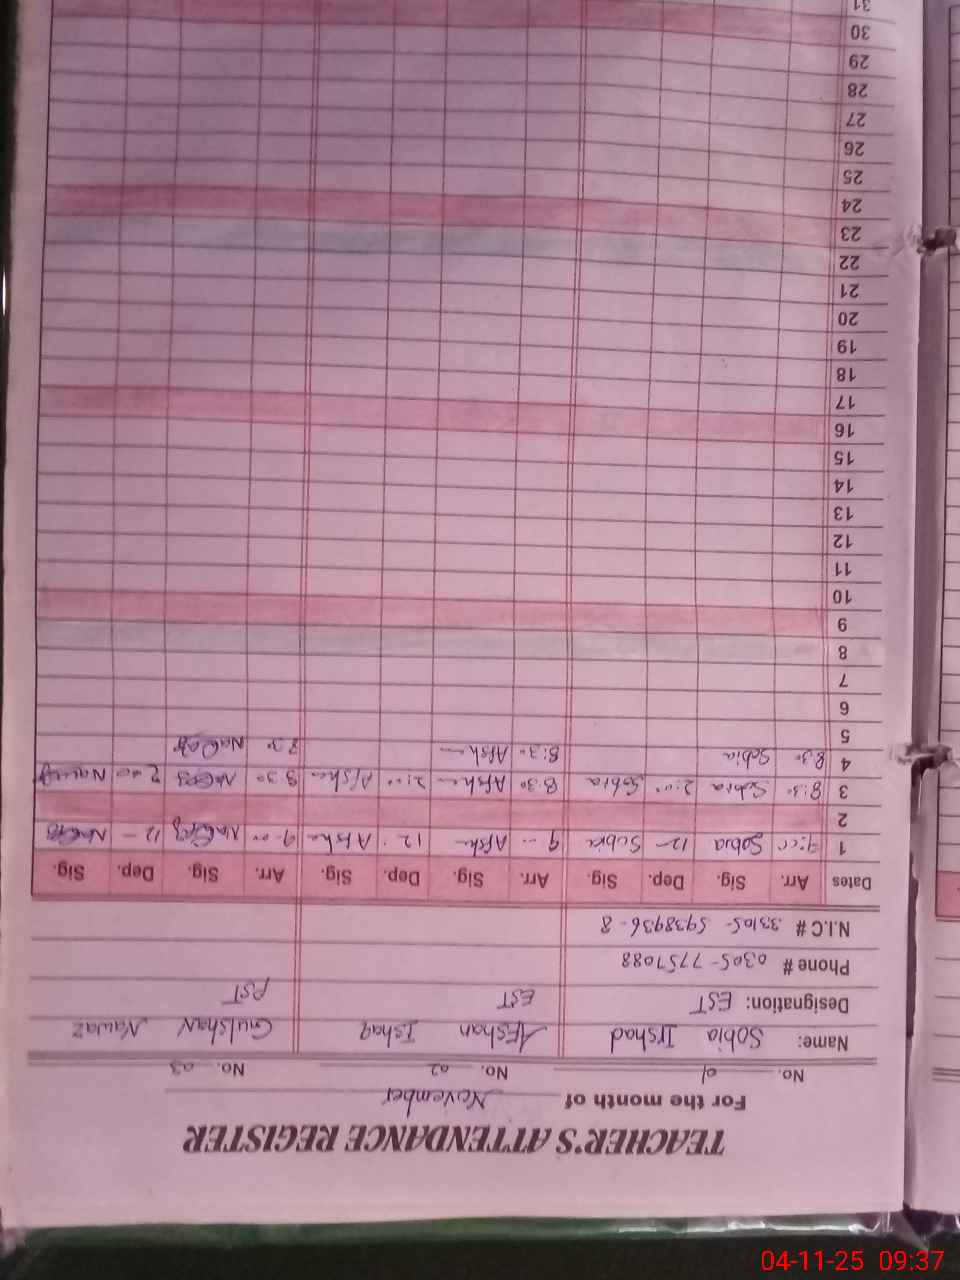 TEACHER'S ATTENDANCE REGISTER
For the month of November
No. 01 No. 02 No. 03
Name: Sobia Irshad Afshan Ishaq Gulshan Nawaz
Designation: EST EST PST
Phone # 0305-7757088
N.I.C # 33105-5938936-8
Dates Arr. Sig. Dep. Sig. Arr. Sig. Dep. Sig. Arr. Sig. Dep. Sig.
1 9:00 Sobia 12 Sobia 9 Afshan 12 Afshan 9.00 12
2
3 8:30 Sobia 2:00 Sobia 8:30 Afshan 2:00 Afshan 8 30 2 00
4 8:30 Sobia 8:30 Afshan 8 30
5
6
7
8
9
10
11
12
13
14
15
16
17
18
19
20
21
22
23
24
25
26
27
28
29
30
31
04-11-25 09:37